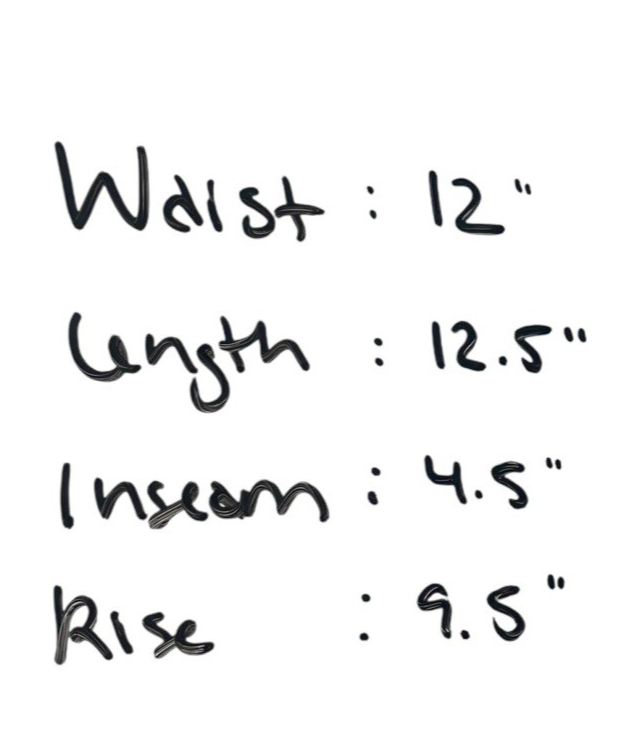 Waist : 12"
Length : 12.5"
Inseam : 4.5"
Rise : 9.5"